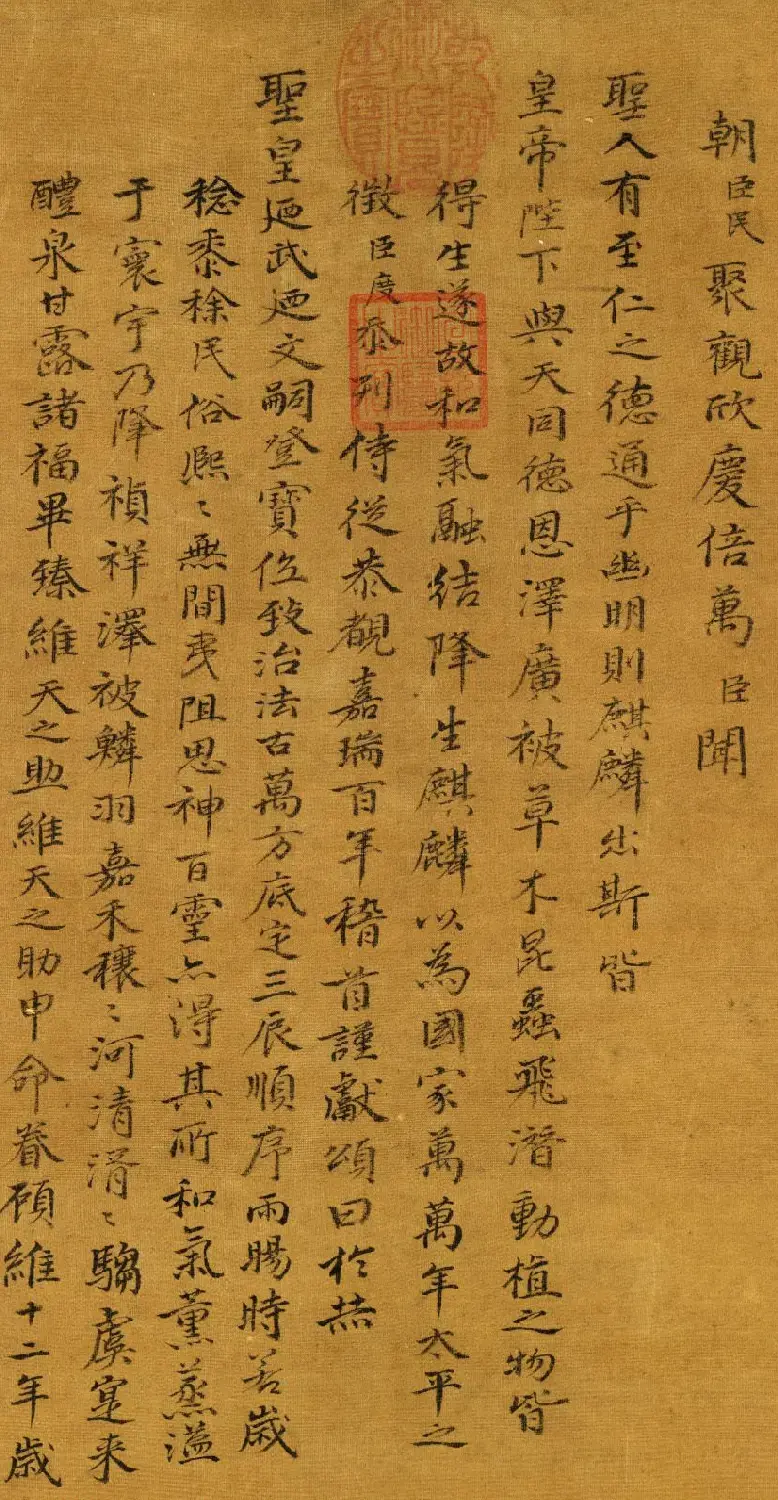 朝臣民聚觀欣慶倍萬臣聞
聖人有至仁之德通乎幽明則麒麟出斯皆
皇帝陛下與天同德恩澤廣被草木昆蟲飛潛動植之物皆
得生遂故和氣融結降生麒麟以為國家萬萬年太平之
徵臣度忝列侍從恭覩嘉瑞百年稽首謹獻頌曰於赫
聖皇迺武迺文嗣登寶位致治法古萬方底定三辰順序雨暘時若歲
稔黍稌民俗熙〻無間夷阻思神百靈亦得其所和氣薰蒸溢
于寰宇乃降禎祥澤被鱗羽嘉禾穰〻河清湑〻騶虞寔来
醴泉甘露諸福畢臻維天之助維天之助申命眷顧維十二年歲